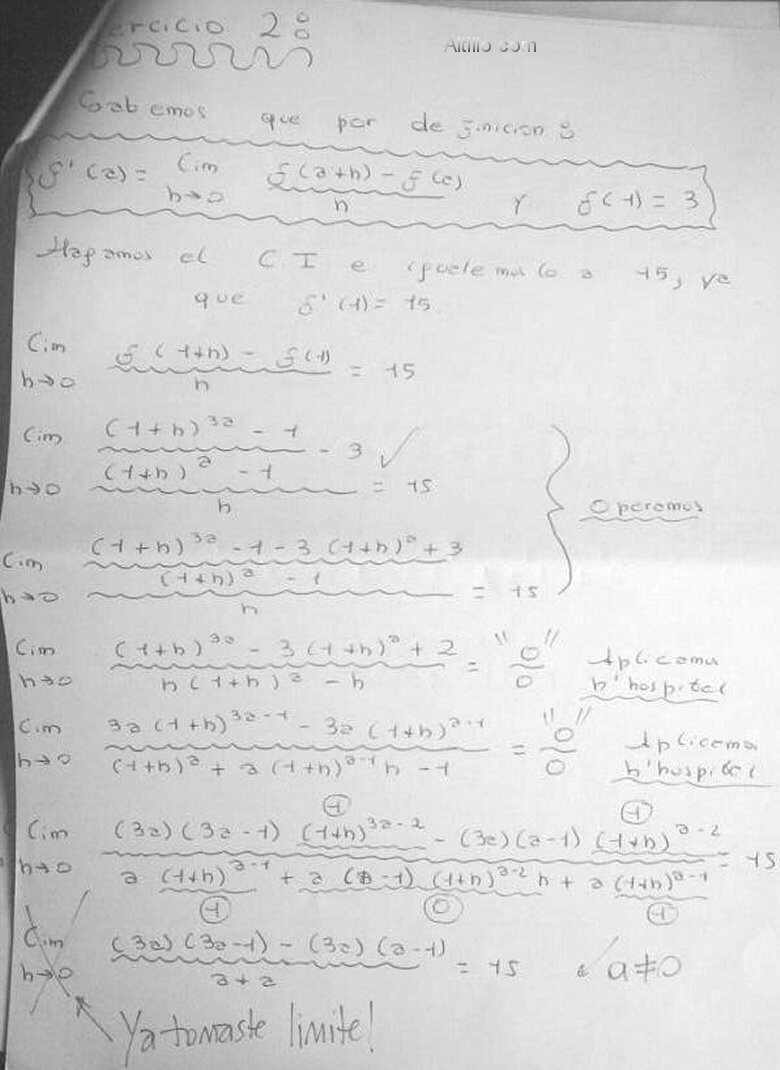 ercicio 2:
Sabemos que por definicion:
f'(a) = lim h→0 (f(a+h) - f(a))/h y f(1) = 3
Hagamos el CI e igualemoslo a 15, ya
que f'(1) = 15
lim h→0 (f(1+h) - f(1))/h = 15
lim h→0 (((1+h)^3a - 1)/((1+h)^a - 1) - 3)/h = 15 ✓
Operemos
lim h→0 (((1+h)^3a - 1 - 3(1+h)^a + 3)/((1+h)^a - 1))/h = 15
lim h→0 ((1+h)^3a - 3(1+h)^a + 2)/(h(1+h)^a - h) = "0/0" Aplicamos h'hospital
lim h→0 (3a(1+h)^3a-1 - 3a(1+h)^a-1)/((1+h)^a + a(1+h)^a-1 h - 1) = "0/0" Aplicamos h'hospital
lim h→0 ((3a)(3a-1)(1+h)^3a-2 - (3a)(a-1)(1+h)^a-2)/(a(1+h)^a-1 + a(a-1)(1+h)^a-2 h + a(1+h)^a-1) = 15
1 1
1 0 1
lim h→0 ((3a)(3a-1) - (3a)(a-1))/(a+a) = 15 ✓ a≠0
Ya tomaste limite!